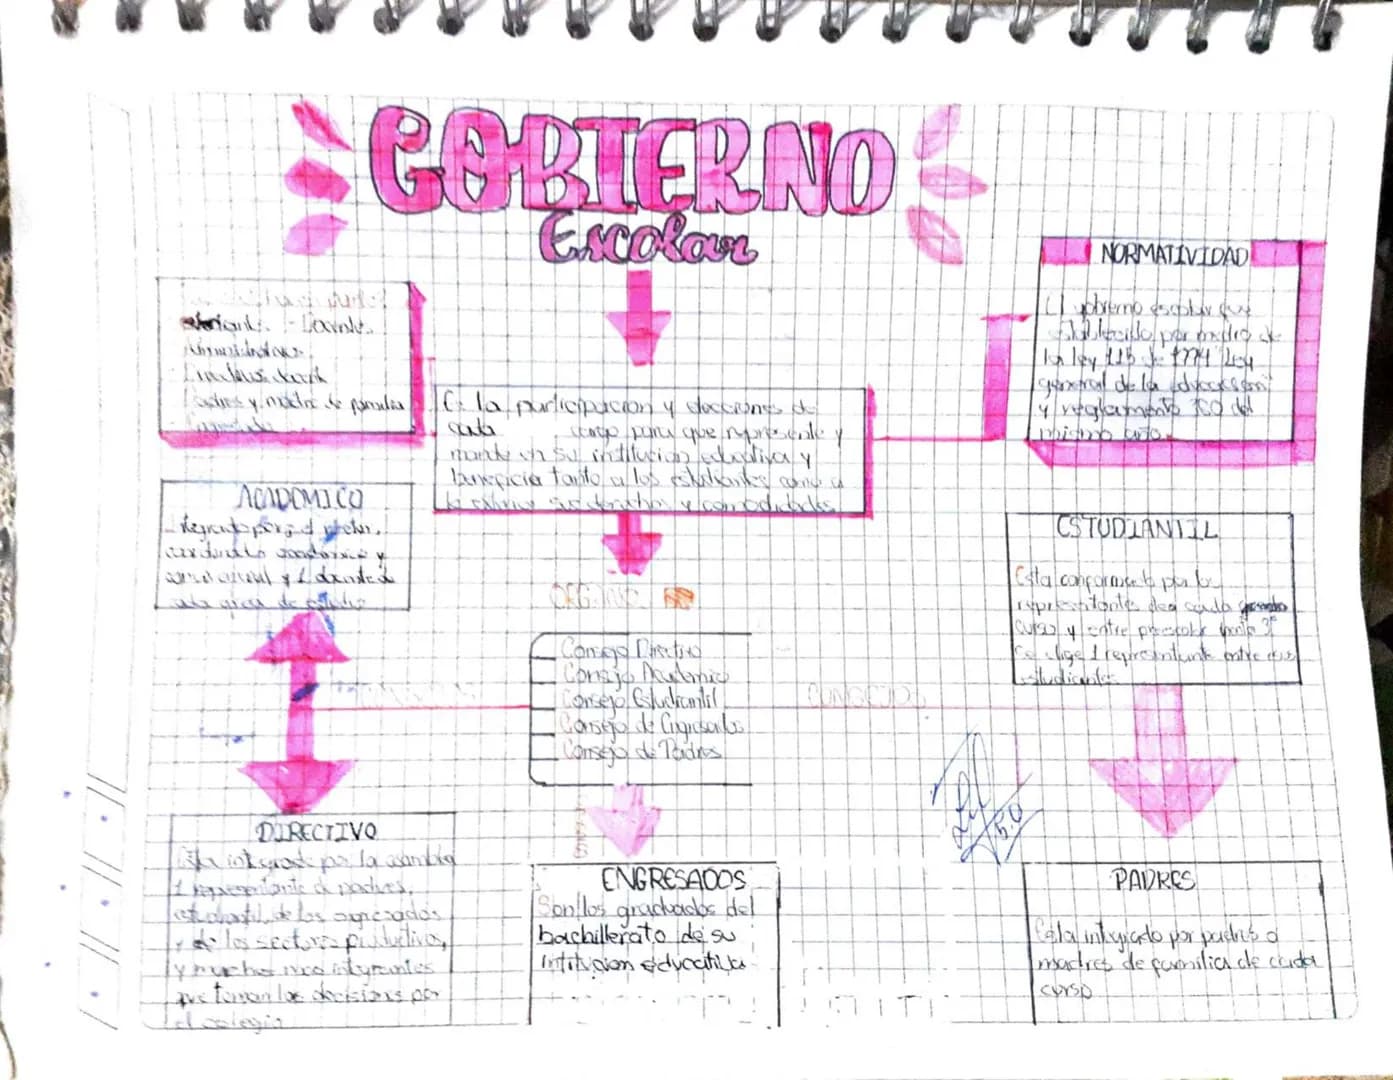 GOBIERNO
Escolar
Docente.
padres y madre de familia
Es la participacion y elecciones de
cada cargo para que represente y
mande en su institucion educativa y
beneficia tanto a los estudiantes como a
y comodidades
NORMATIVIDAD
El gobierno escolar fue
establecido por medio de
la ley 115 de 1994 ley
general de la educacion
y reglamento 1860 del
mismo año.
ACADEMICO
Integrado por; el rector,
academico y
y 1 docente de
cada area de estudio
ORGANO
Consejo Directivo
Consejo Academico
Consejo Estudiantil
Consejo de Engresados
Consejo de Padres
CONSEJOS
ESTUDIANTIL
Esta conformado por los
representantes de cada
curso y entre preescolar hasta 3°
se elige 1 representante entre
estudiantes
DIRECTIVO
Esta integrado por la asamblea
1 representante de padres,
estudiantil, de los egresados
y de los sectores productivos,
y muchos mas integrantes
que toman las decisiones por
el colegio
ENGRESADOS
Son los graduados del
bachillerato de su
intitucion educativa
5.0
PADRES
Esta integrado por padres o
madres de familia de cada
curso